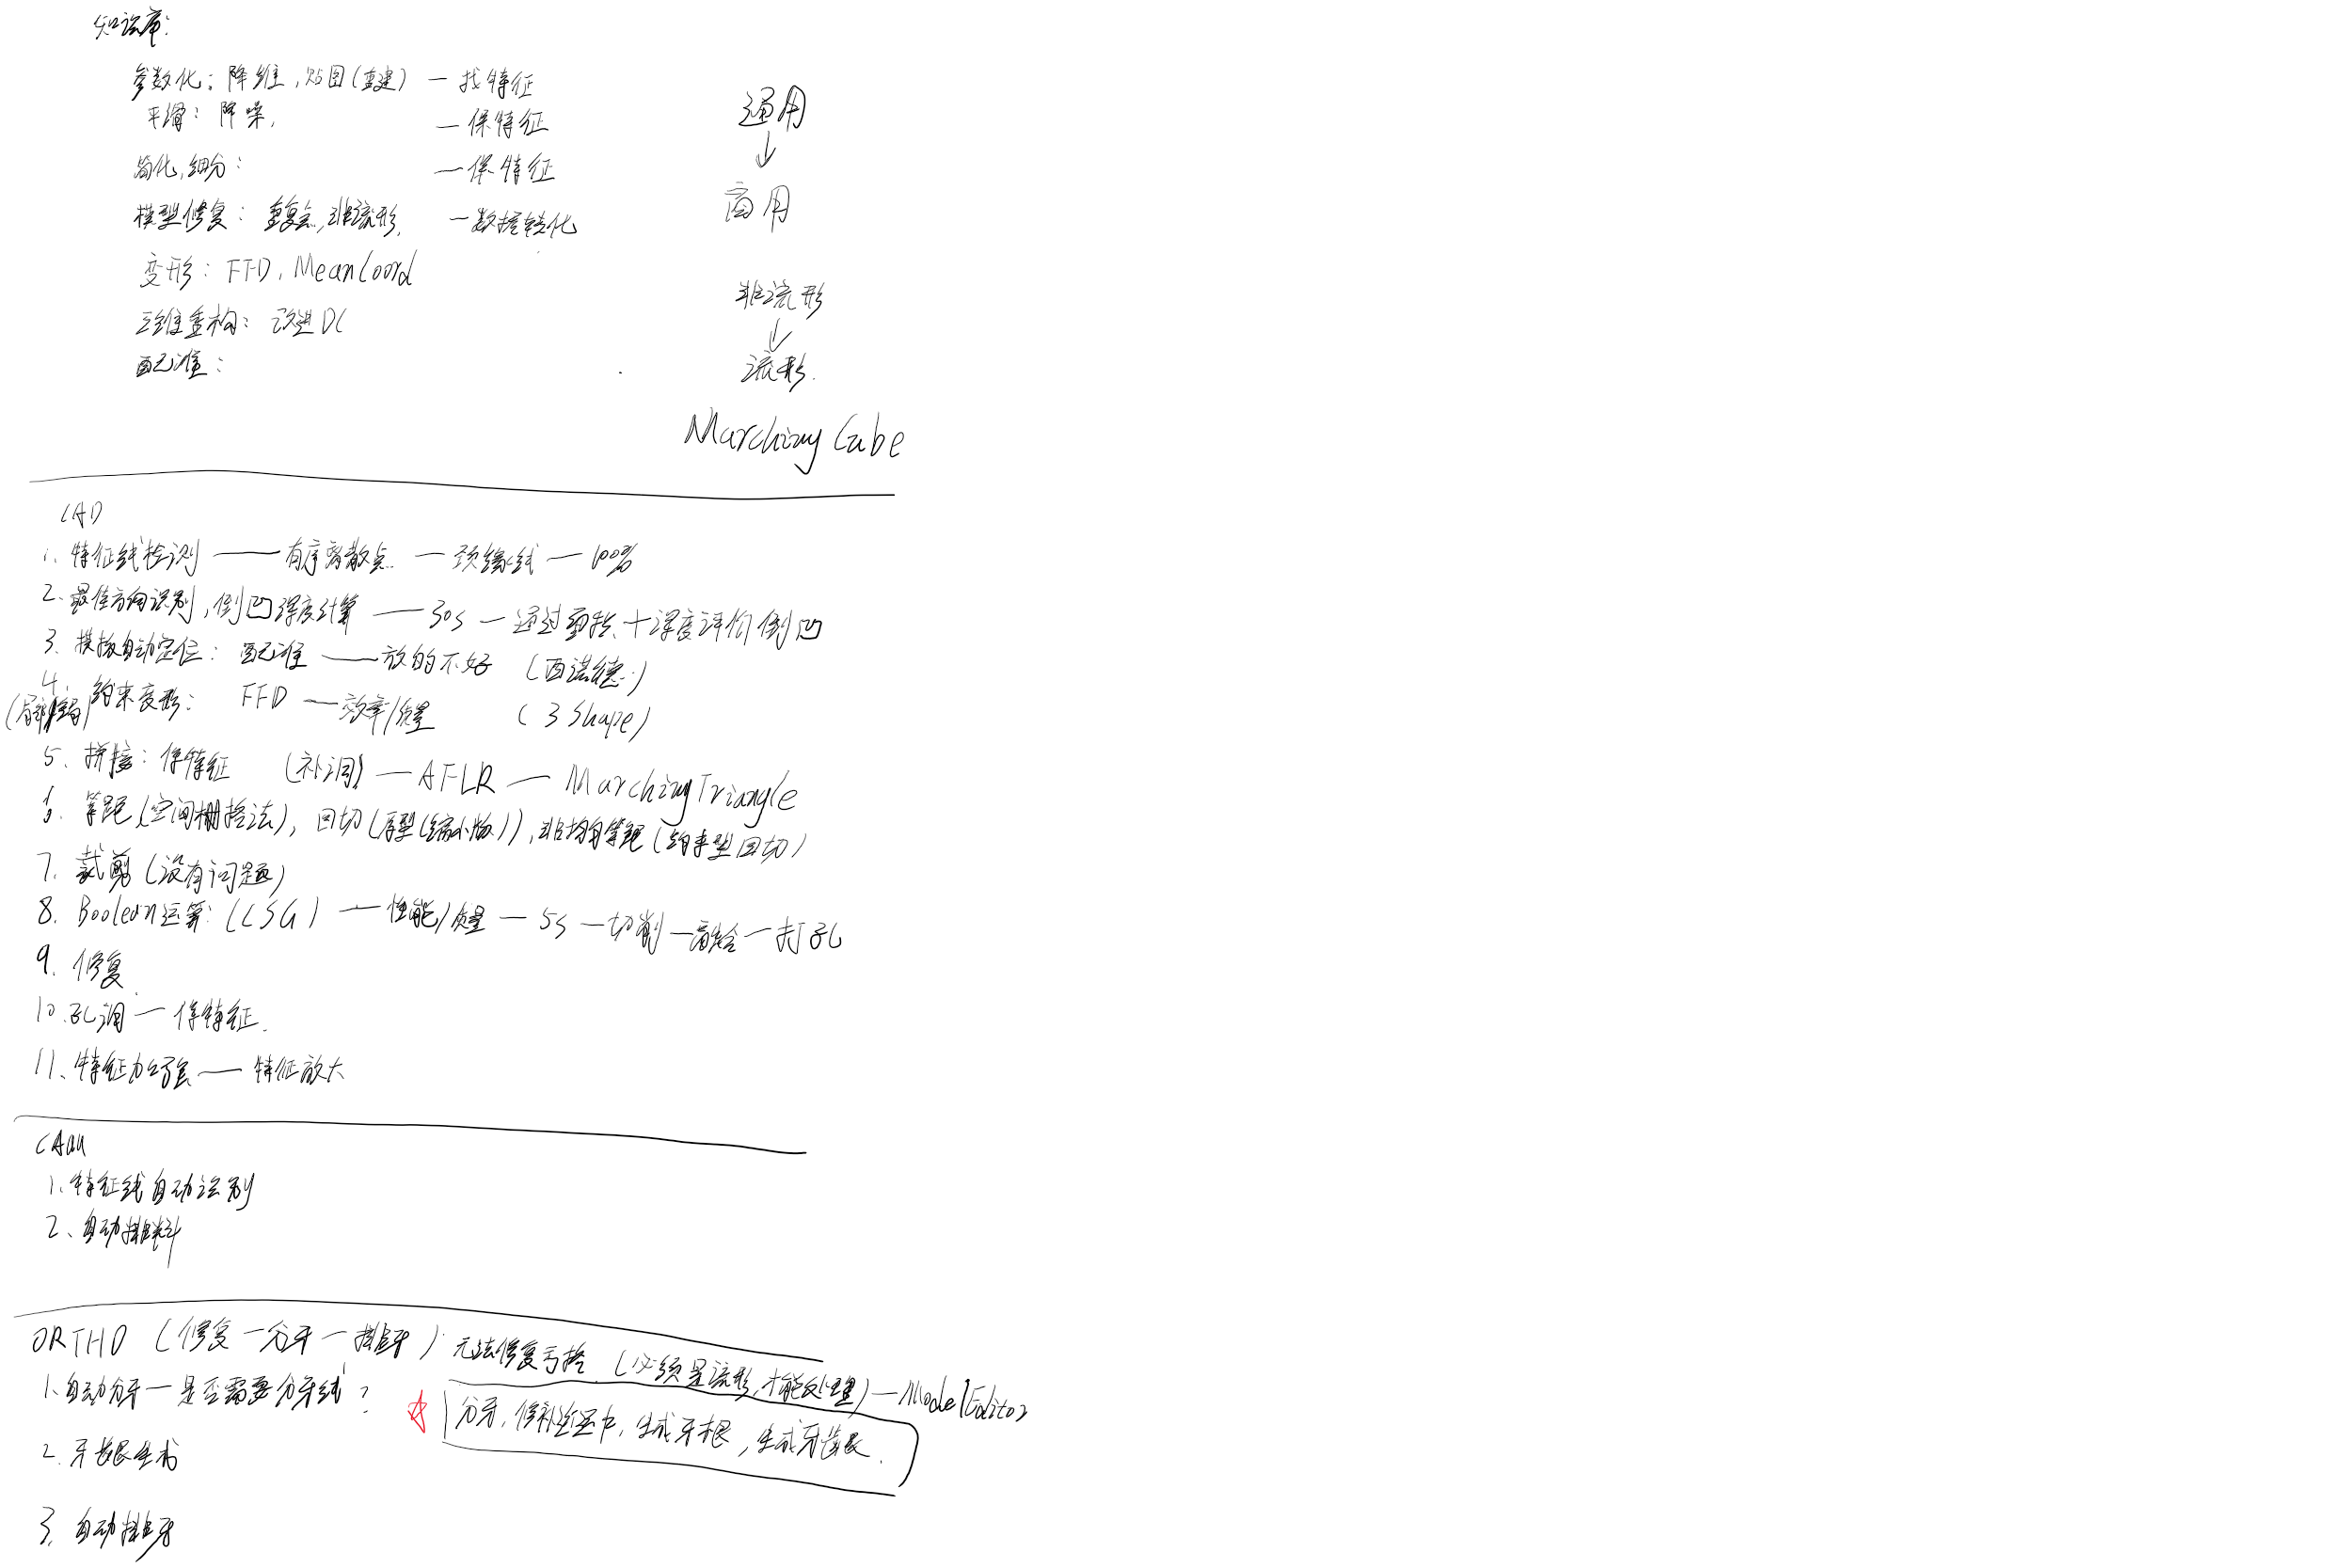 知识库:
参数化: 降维, 贴图(重建) — 找特征
平滑: 降噪, — 保特征
简化, 细分: — 保特征
模型修复: 重复点, 非流形, — 数据转化
变形: FFD, MeanCoord
三维重构: 改进DC
配准:
通用
↓
商用
非流形
↓
流形.
Marching Cube
CAD
1. 特征线检测 —— 有序离散点 — 颈缘线 — 100%
2. 最佳方向识别, 倒凹深度计算 —— 30s — 通过面积+深度评价倒凹
3. 模板自动定位: 配准 —— 放的不好 (西诺德)
4. 约束变形: FFD —— 效率/质量 (3Shape)
5. 拼接: 保特征 (补洞) — AFLR — MarchingTriangle
6. 等距(空间栅格法), 回切(原型(缩小版)), 非均匀等距(约束型回切)
7. 裁剪(没有问题)
8. Boolean运算: (CSG) — 性能/质量 — 5s — 切削 — — 打孔
9. 修复
10. 孔洞 — 保特征.
11. 特征加强 —— 特征放大
CAM
1. 特征线自动识别
2. 自动排料
ORTHO (修复 — 分牙 — 排牙) 无法修复 (必须是流形, 才能处理) — ModelEditor
1. 自动分牙 — 是否需要分牙线?
☆ 分牙, 修补, 生成牙根, 生成牙龈.
2. 牙龈生成
3. 自动排牙